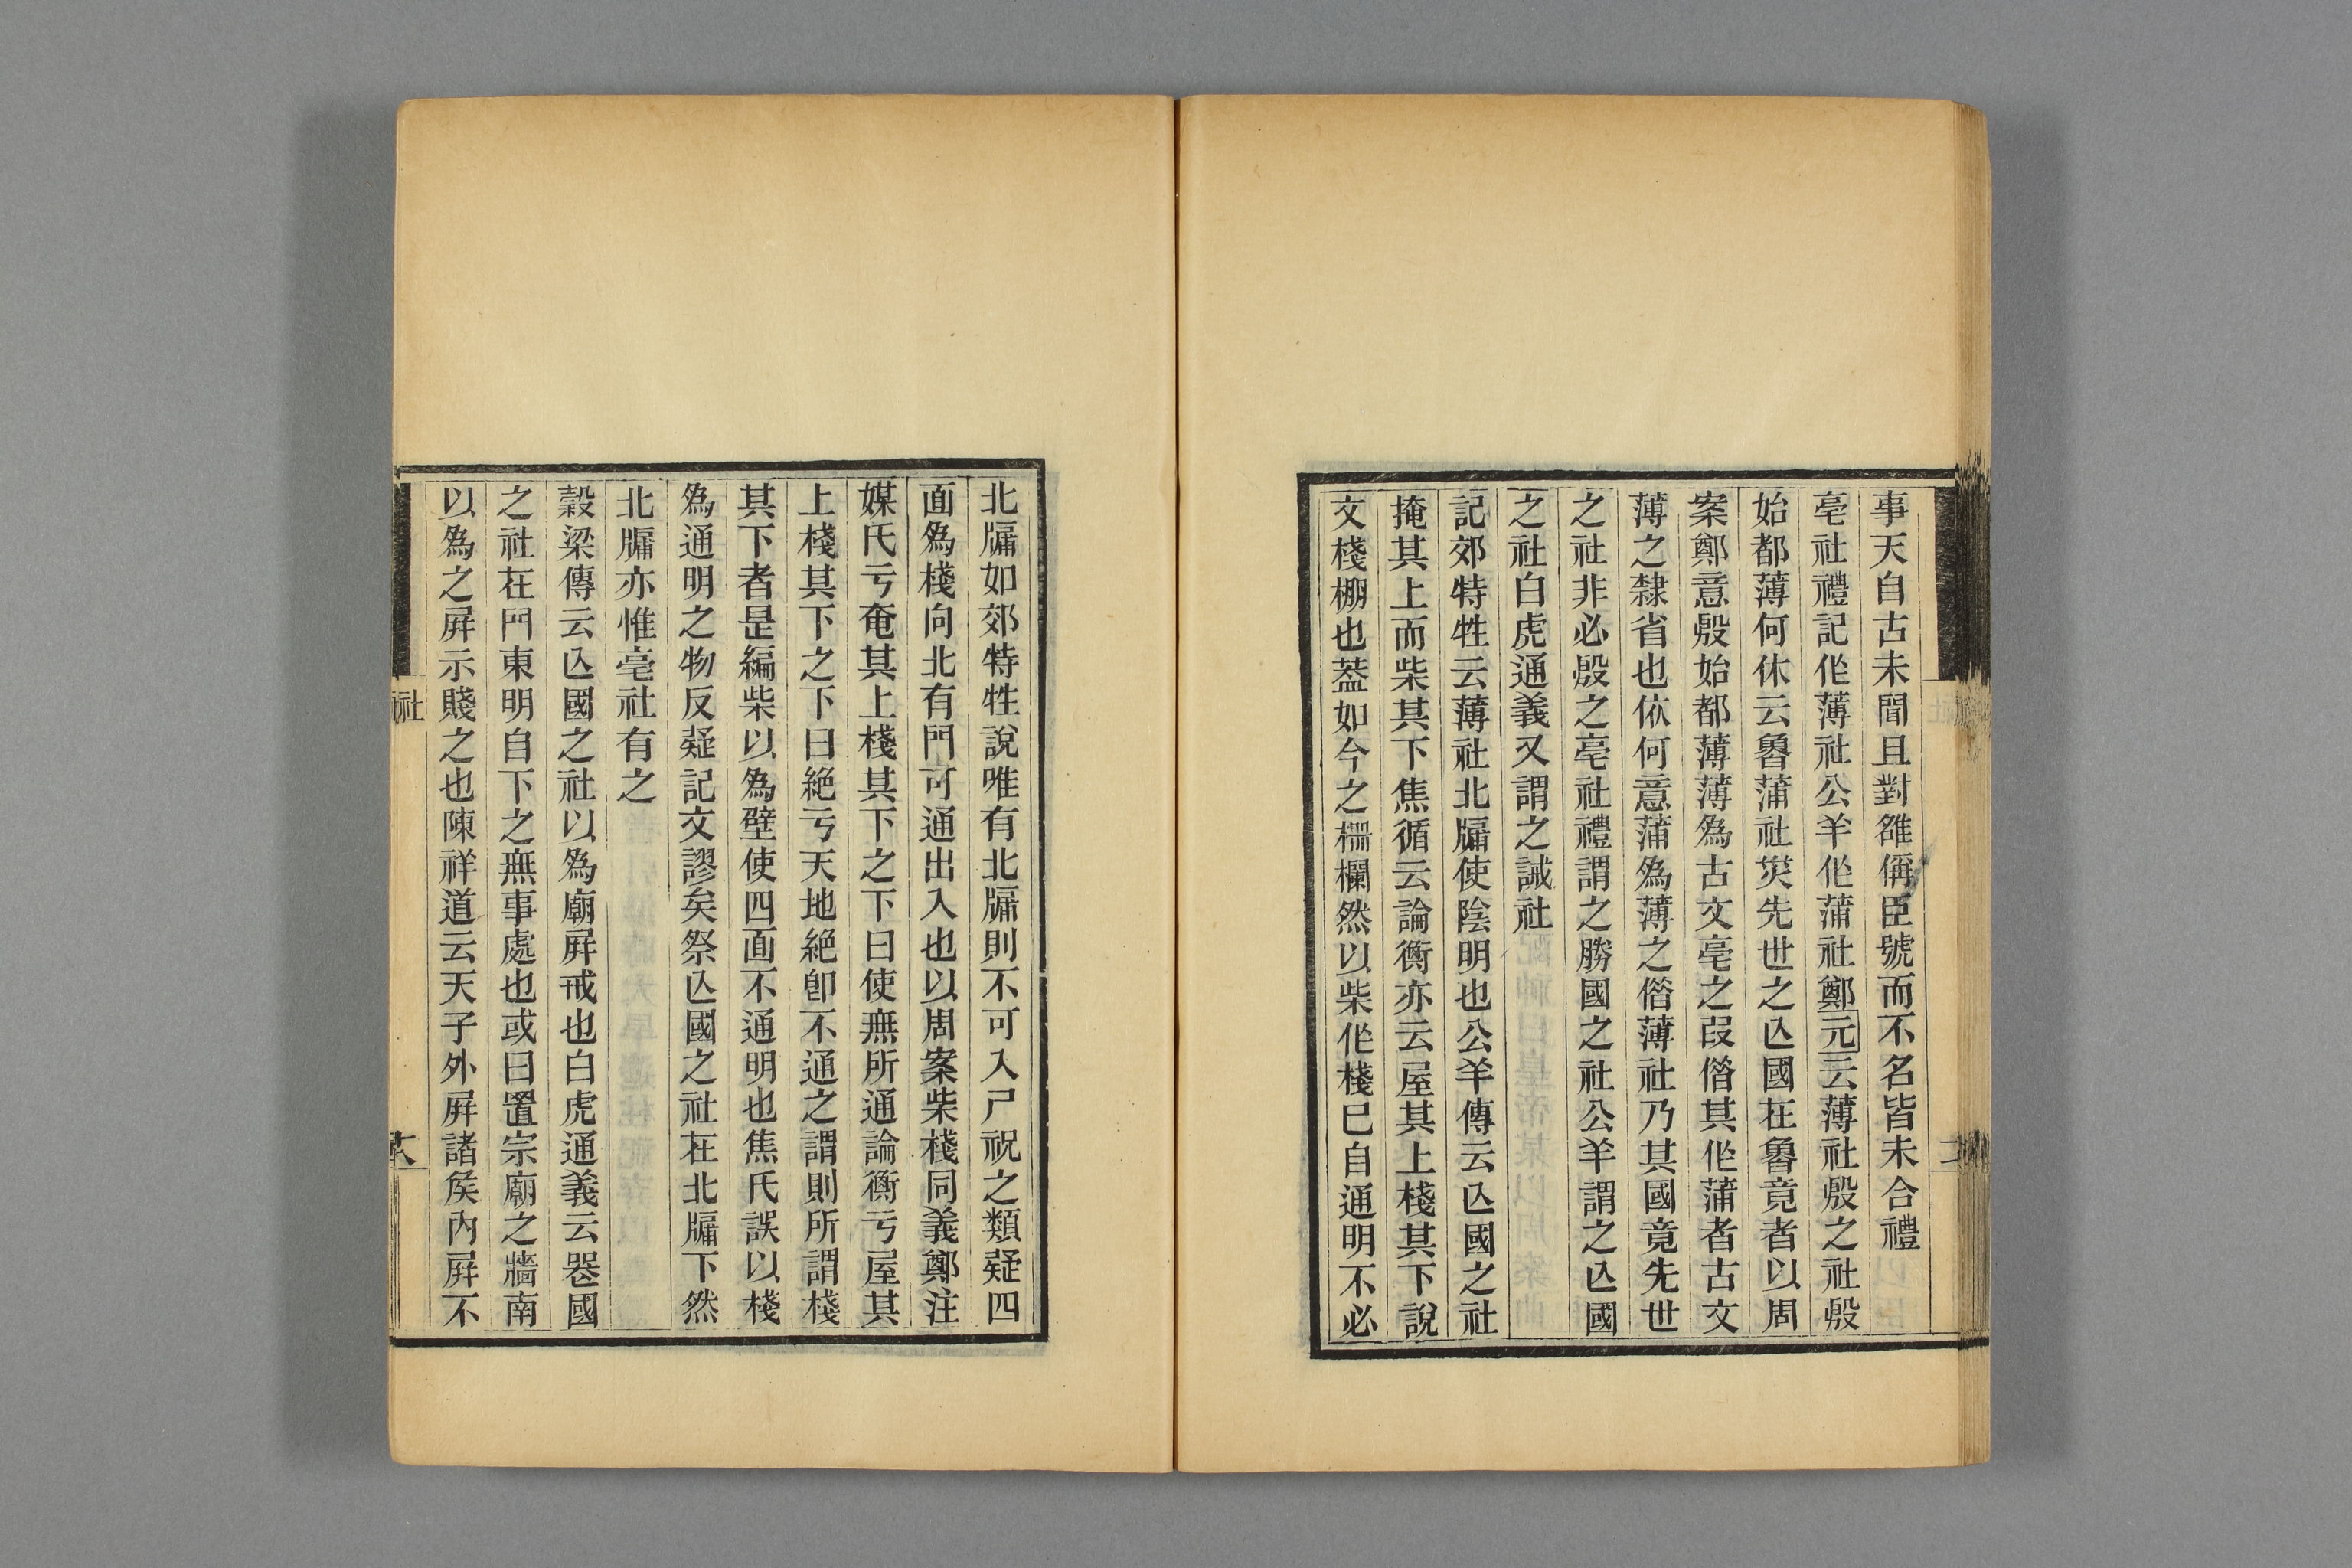 事天自古未聞且對雒偁臣號而不名皆未合禮
亳社禮記作薄社公羊作蒲社鄭元云薄社殷之社殷
始都薄何休云魯蒲社災先世之亾國在魯竟者以周
案鄭意殷始都薄薄為古文亳之叚偺其作蒲者古文
薄之隸省也依何意蒲為薄之偺薄社乃其國竟先世
之社非必殷之亳社禮謂之勝國之社公羊謂之亾國
之社白虎通義又謂之誡社
記郊特牲云薄社北牖使陰明也公羊傳云亾國之社
掩其上而柴其下焦循云論衡亦云屋其上棧其下說
文棧棚也葢如今之柵欄然以柴作棧巳自通明不必
北牖如郊特牲說唯有北牖則不可入尸祝之類疑四
面為棧向北有門可通出入也以周案柴棧同義鄭注
媒氏亏奄其上棧其下之下曰使無所通論衡亏屋其
上棧其下之下曰絕亏天地絕卽不通之謂則所謂棧
其下者是編柴以為壁使四面不通明也焦氏誤以棧
為通明之物反疑記文謬矣祭亾國之社在北牖下然
北牖亦惟亳社有之
穀梁傳云亾國之社以為廟屏戒也白虎通義云器國
之社在門東明自下之無事處也或曰置宗廟之牆南
以為之屏示賤之也陳祥道云天子外屏諸矦內屏不
社